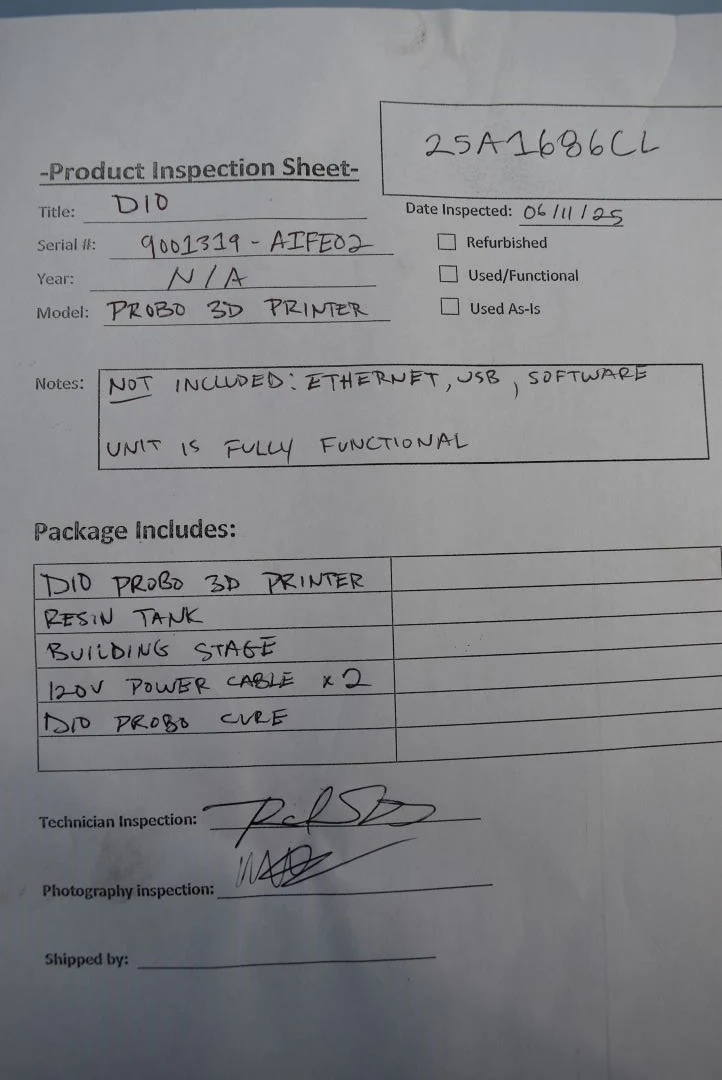 25A1686CL
-Product Inspection Sheet-
Title: DIO
Date Inspected: 06/11/25
Serial #: 9001319 - AIFE02
Refurbished
Year: N/A
Used/Functional
Model: PROBO 3D PRINTER
Used As-Is
Notes: NOT INCLUDED: ETHERNET, USB, SOFTWARE
UNIT IS FULLY FUNCTIONAL
Package Includes:
DIO PROBO 3D PRINTER
RESIN TANK
BUILDING STAGE
120V POWER CABLE x 2
DIO PROBO CURE
Technician Inspection:
Photography inspection:
Shipped by: